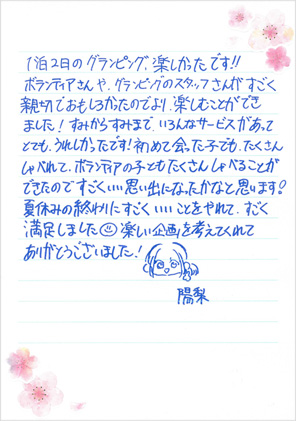 1泊2日のグランピング、楽しかったです!!
ボランティアさんや、グランピングのスタッフさんがすごく
親切でおもしろかったのでより、楽しむことができ
ました!すみからすみまで、いろんなサービスがあって
とても、うれしかったです!初めて会った子でも、たくさん
しゃべれて、ボランティアの子ともたくさんしゃべることが
できたのですごくいい思い出になったかなと思います!
夏休みの終わりにすごくいいことをやれて、すごく
満足しました 楽しい企画を考えてくれて
ありがとうございました!
陽梨